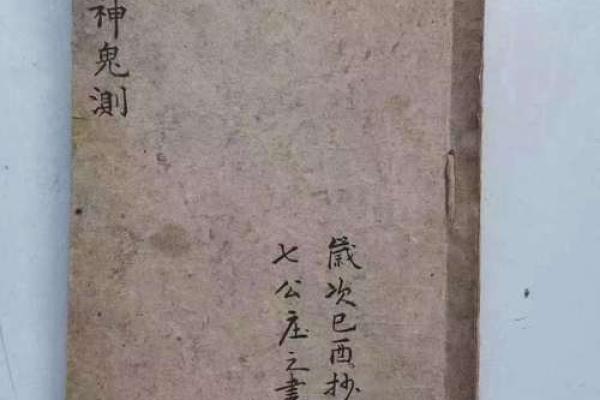 嵗次已酉抄
七公庄之書
神鬼測